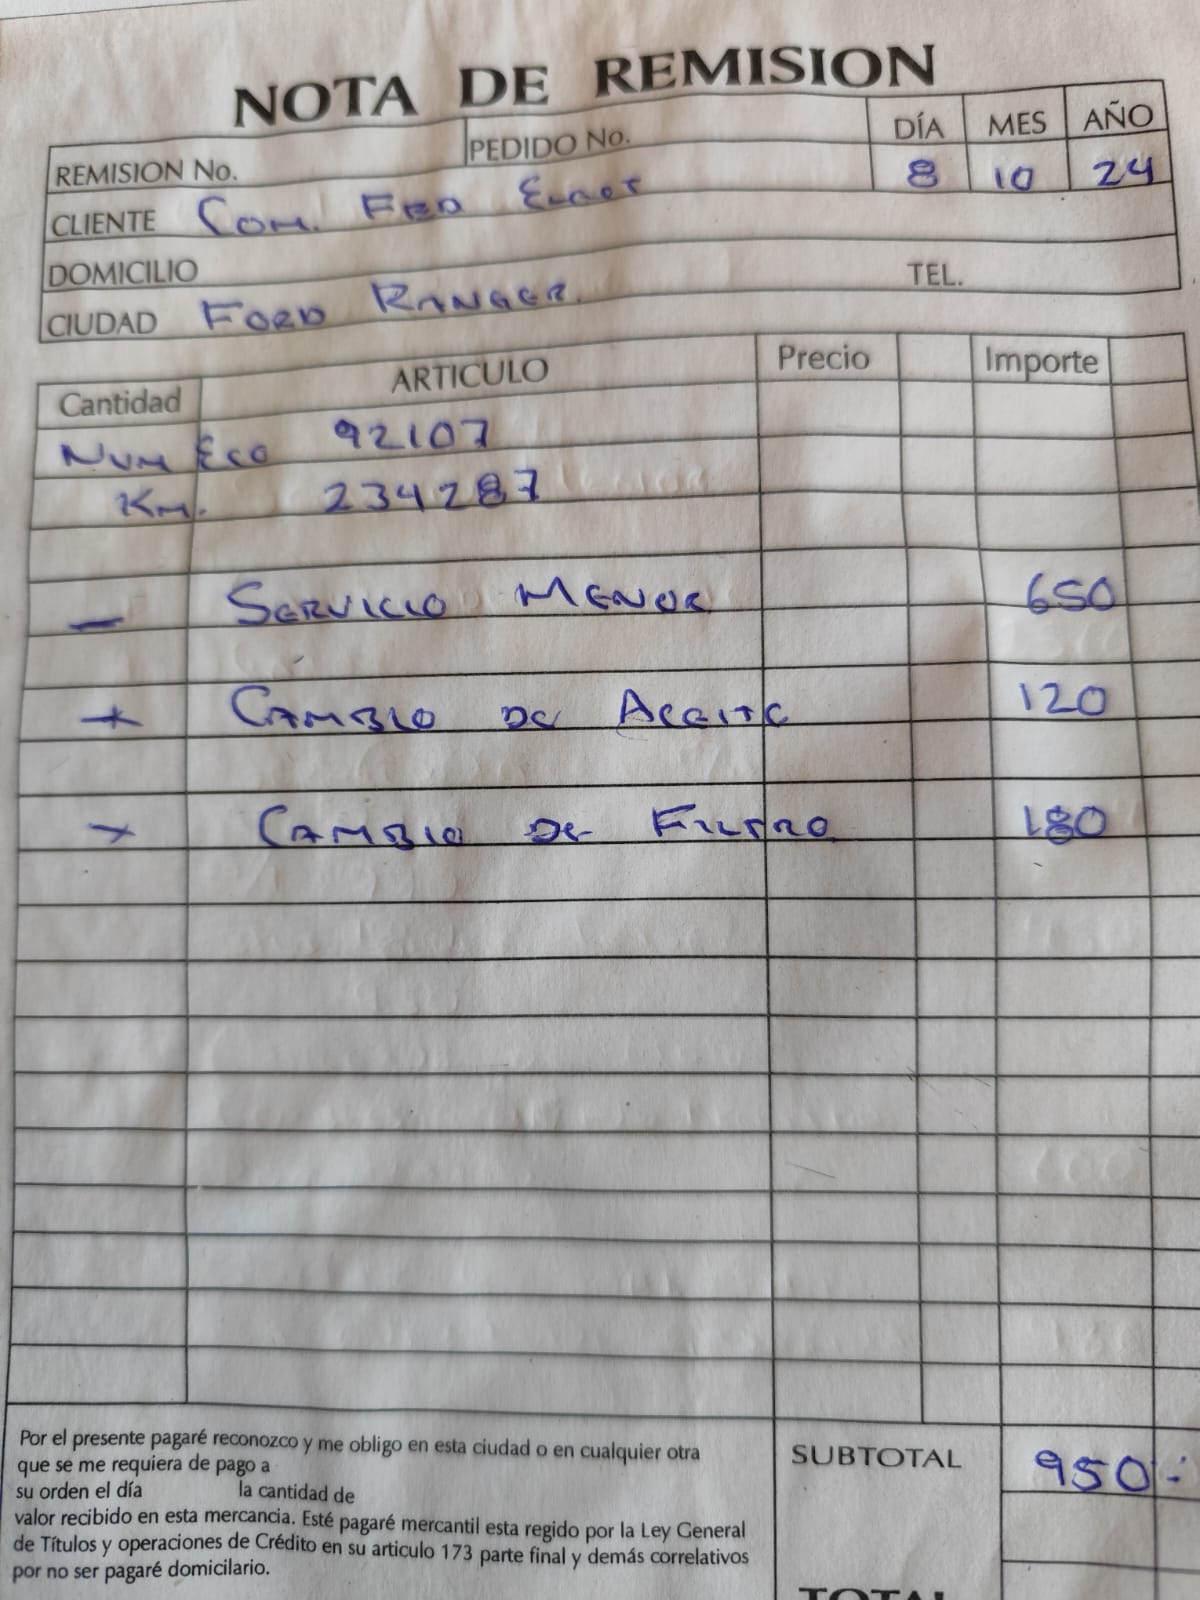 NOTA DE REMISION
REMISION No. PEDIDO No. DÍA MES AÑO
8 10 24
CLIENTE Com. Fed Elect
DOMICILIO TEL.
CIUDAD FORD RANGER.
Cantidad ARTICULO Precio Importe
NUM ECO 92107
Km. 234287
— SERVICIO MENOR 650
+ CAMBIO DE ACEITE 120
+ CAMBIO DE FILTRO 180
Por el presente pagaré reconozco y me obligo en esta ciudad o en cualquier otra
que se me requiera de pago a
su orden el día la cantidad de
valor recibido en esta mercancia. Esté pagaré mercantil esta regido por la Ley General
de Títulos y operaciones de Crédito en su articulo 173 parte final y demás correlativos
por no ser pagaré domicilario.
SUBTOTAL 950.-
TOTAL